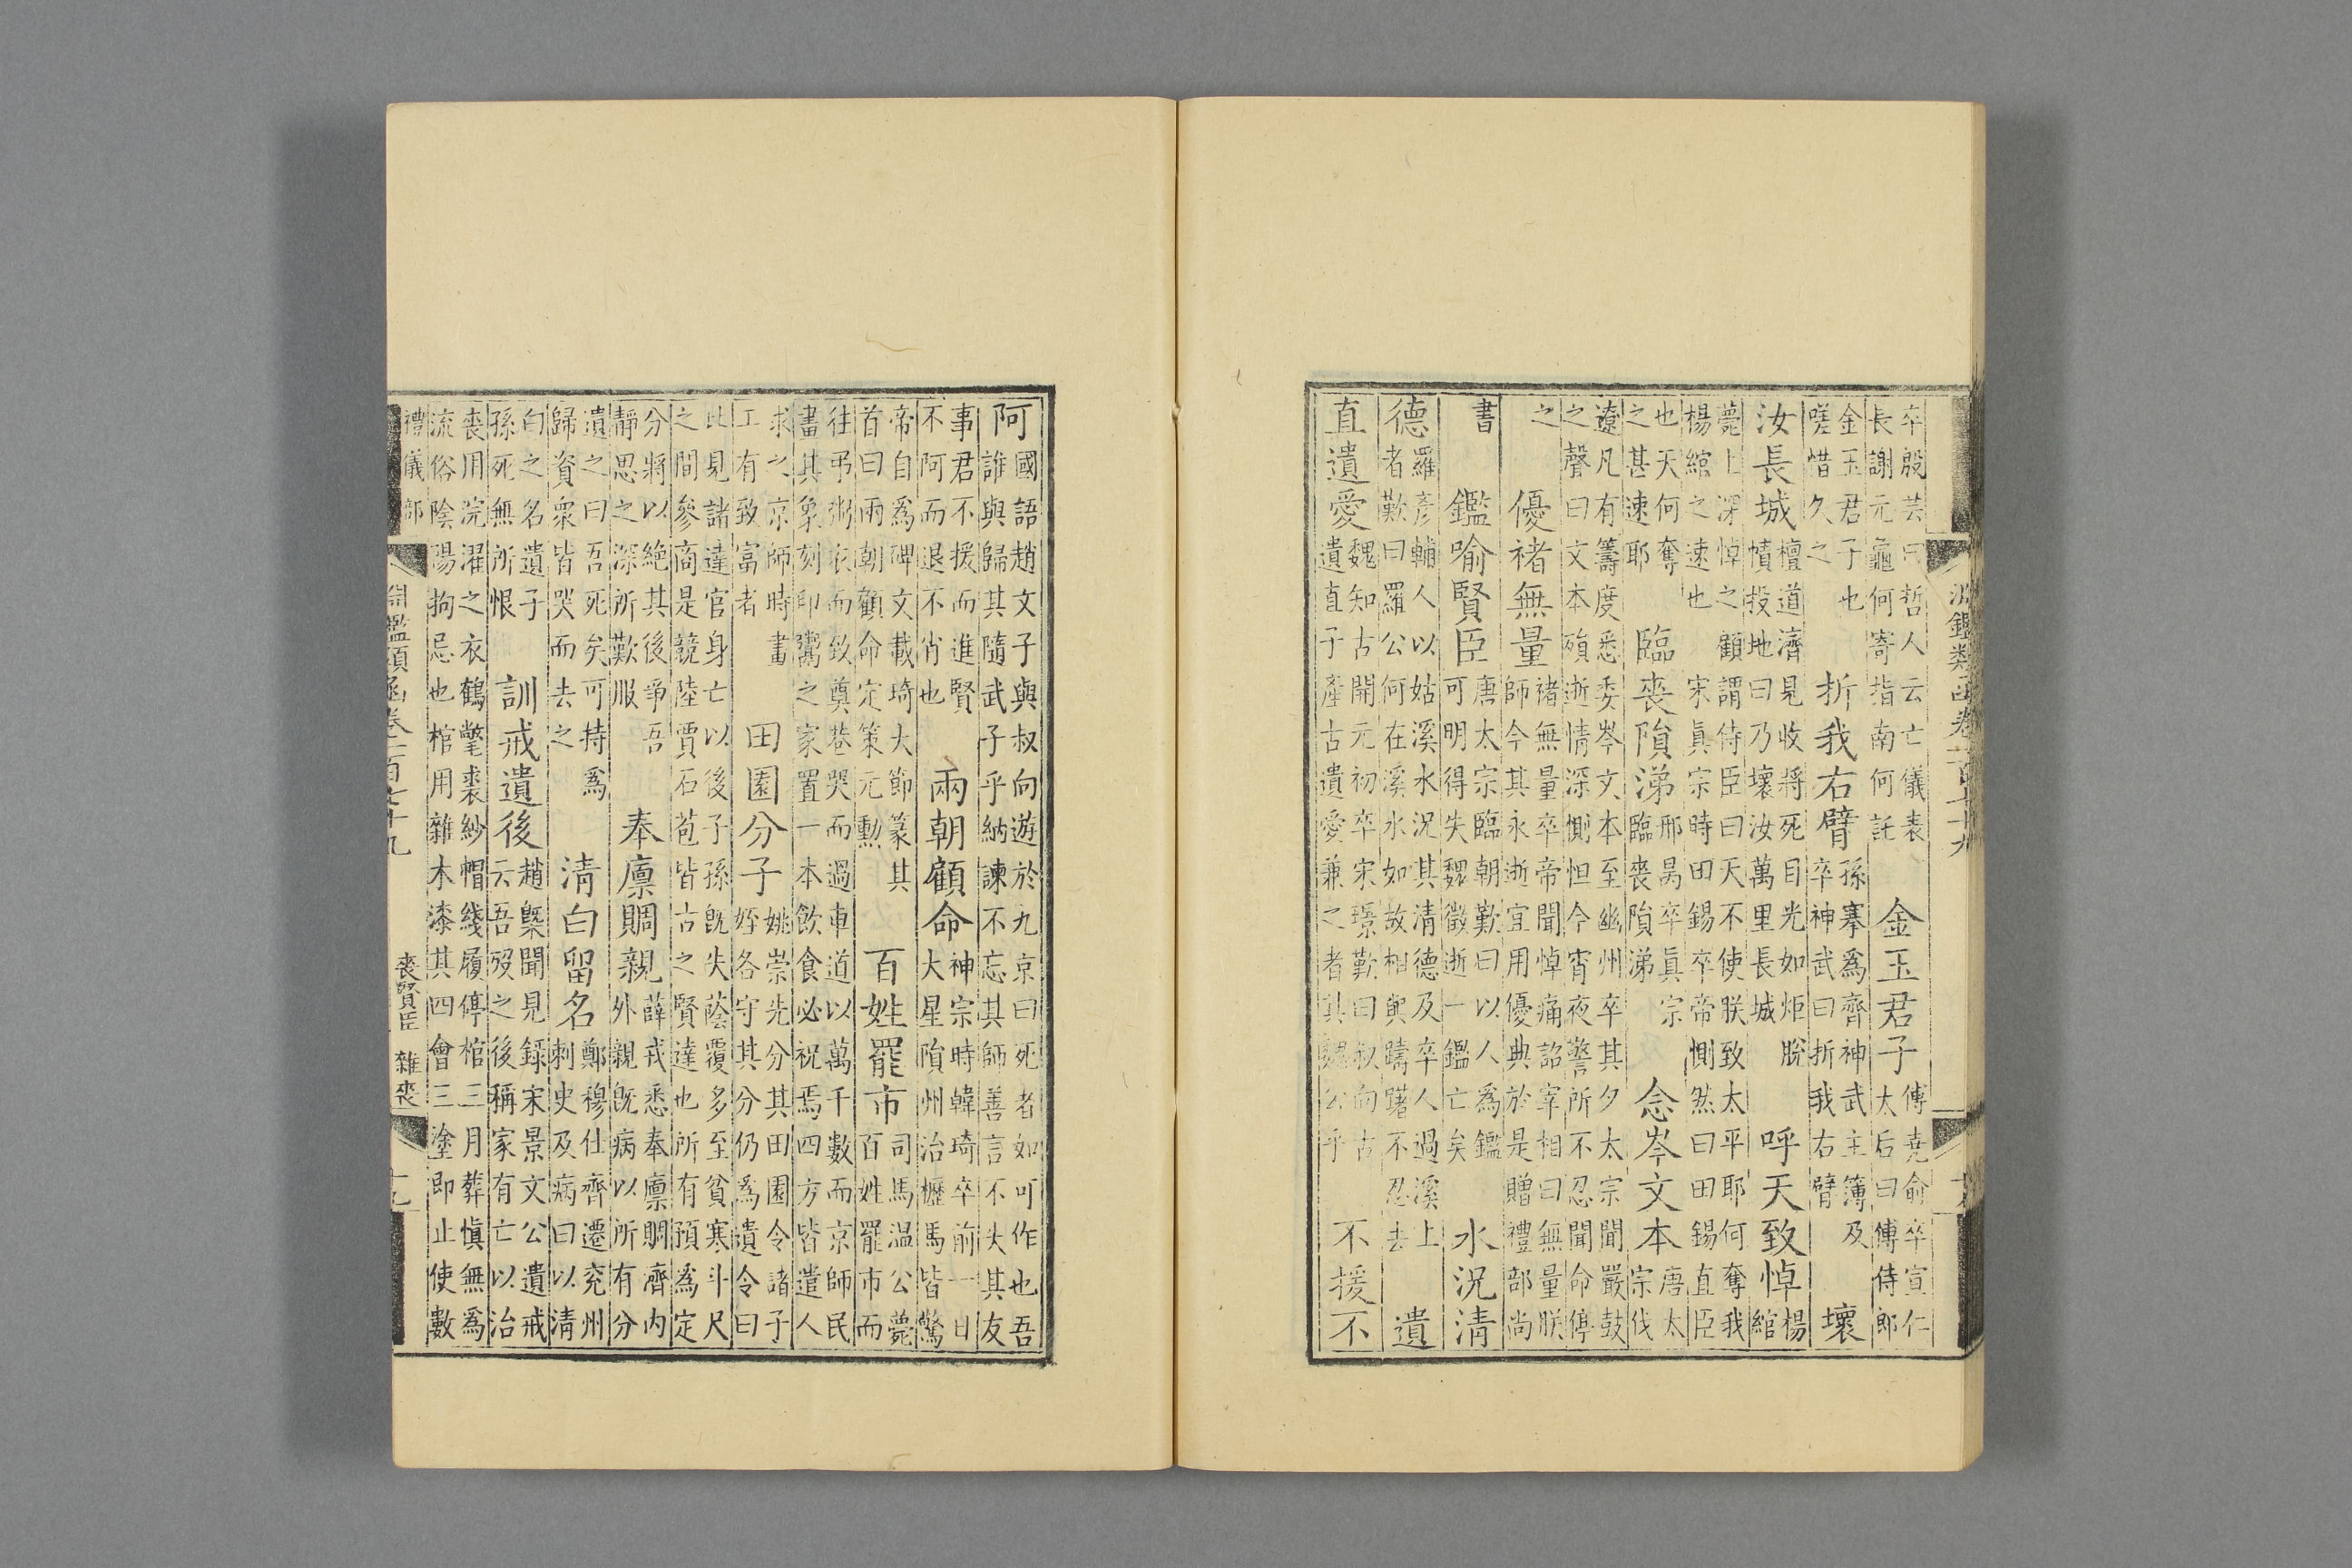 淵鑑類函卷二百七十九
卒殷芸曰哲人云亡儀表長謝元龜何寄指南何託金玉君子傅堯俞卒宣仁太后曰傅侍郎
金玉君子也嗟惜久之折我右臂孫搴爲齊神武主簿及卒神武曰折我右臂壞
汝長城檀道濟見收將死目光如炬脫幘投地曰乃壞汝萬里長城呼天致悼楊綰
薨上深悼之顧謂侍臣曰天不使朕致太平耶何奪我楊綰之速也宋眞宗時田錫卒帝惻然曰田錫直臣
也天何奪之甚速耶臨喪隕涕邢昺卒眞宗臨喪隕涕念岑文本唐太宗伐
遼凡有籌度悉委岑文本至幽州卒其夕太宗聞嚴鼓之聲曰文本殞逝情深惻怛今宵夜警所不忍聞命停
之優褚無量褚無量卒帝聞悼痛詔宰相曰無量朕師今其永逝宜用優典於是贈禮部尚
書鑑喻賢臣唐太宗臨朝歎曰以人爲鑑可明得失魏徵逝一鑑亡矣水況清
德羅彥輔人以姑溪水況其清德及卒人過溪上者歎曰羅公何在溪水如故相與躊躇不忍去遺
直遺愛魏知古開元初卒宋璟歎曰叔向古遺直子產古遺愛兼之者其魏公乎不援不
阿國語趙文子與叔向遊於九京曰死者如可作也吾誰與歸其隨武子乎納諫不忘其師善言不失其友
事君不援而進賢不阿而退不肖也兩朝顧命神宗時韓琦卒前一日大星隕州治櫪馬皆驚
帝自爲碑文載琦大節篆其首曰兩朝顧命定策元勳百姓罷市司馬温公薨百姓罷市而
往弔鬻衣而致奠巷哭而過車道以萬千數而京師民畫其象刻印鬻之家置一本飲食必祝焉四方皆遣人
求之京師時畫工有致富者田園分子姚崇先分其田園令諸子姪各守其分仍爲遺令曰
比見諸達官身亡以後子孫旣失蔭覆多至貧寒斗尺之間參商是競陸賈石苞皆古之賢達也所有預爲定
分將以絶其後爭吾靜思之深所歎服奉廩賙親薛戎悉奉廩賙濟内外親旣病以所有分
遺之曰吾死矣可持爲歸資衆皆哭而去之清白留名鄭穆仕齊遷兖州刺史及病曰以清
白之名遺子孫死無所恨訓戒遺後趙槩聞見録宋景文公遺戒云吾歿之後稱家有亡以治
喪用浣濯之衣鶴氅裘紗帽綫履停棺三月葬愼無爲流俗陰陽拘忌也棺用雜木漆其四會三塗即止使數
禮儀部
淵鑑類函卷二百七十九
喪賢臣 雜喪
十九